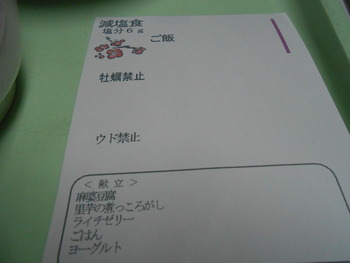 減塩食
塩分6g
ご飯
牡蠣禁止
ウド禁止
<献立>
麻婆豆腐
里芋の煮っころがし
ライチゼリー
ごはん
ヨーグルト